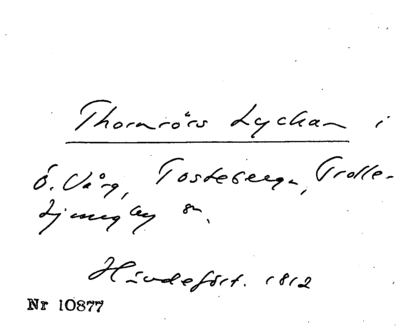 Thornrörs Lyckan i
Ö. Vång, Tosteberga, Trolle-
Ljungby sn.
Händefört. 1812
Nr 10877